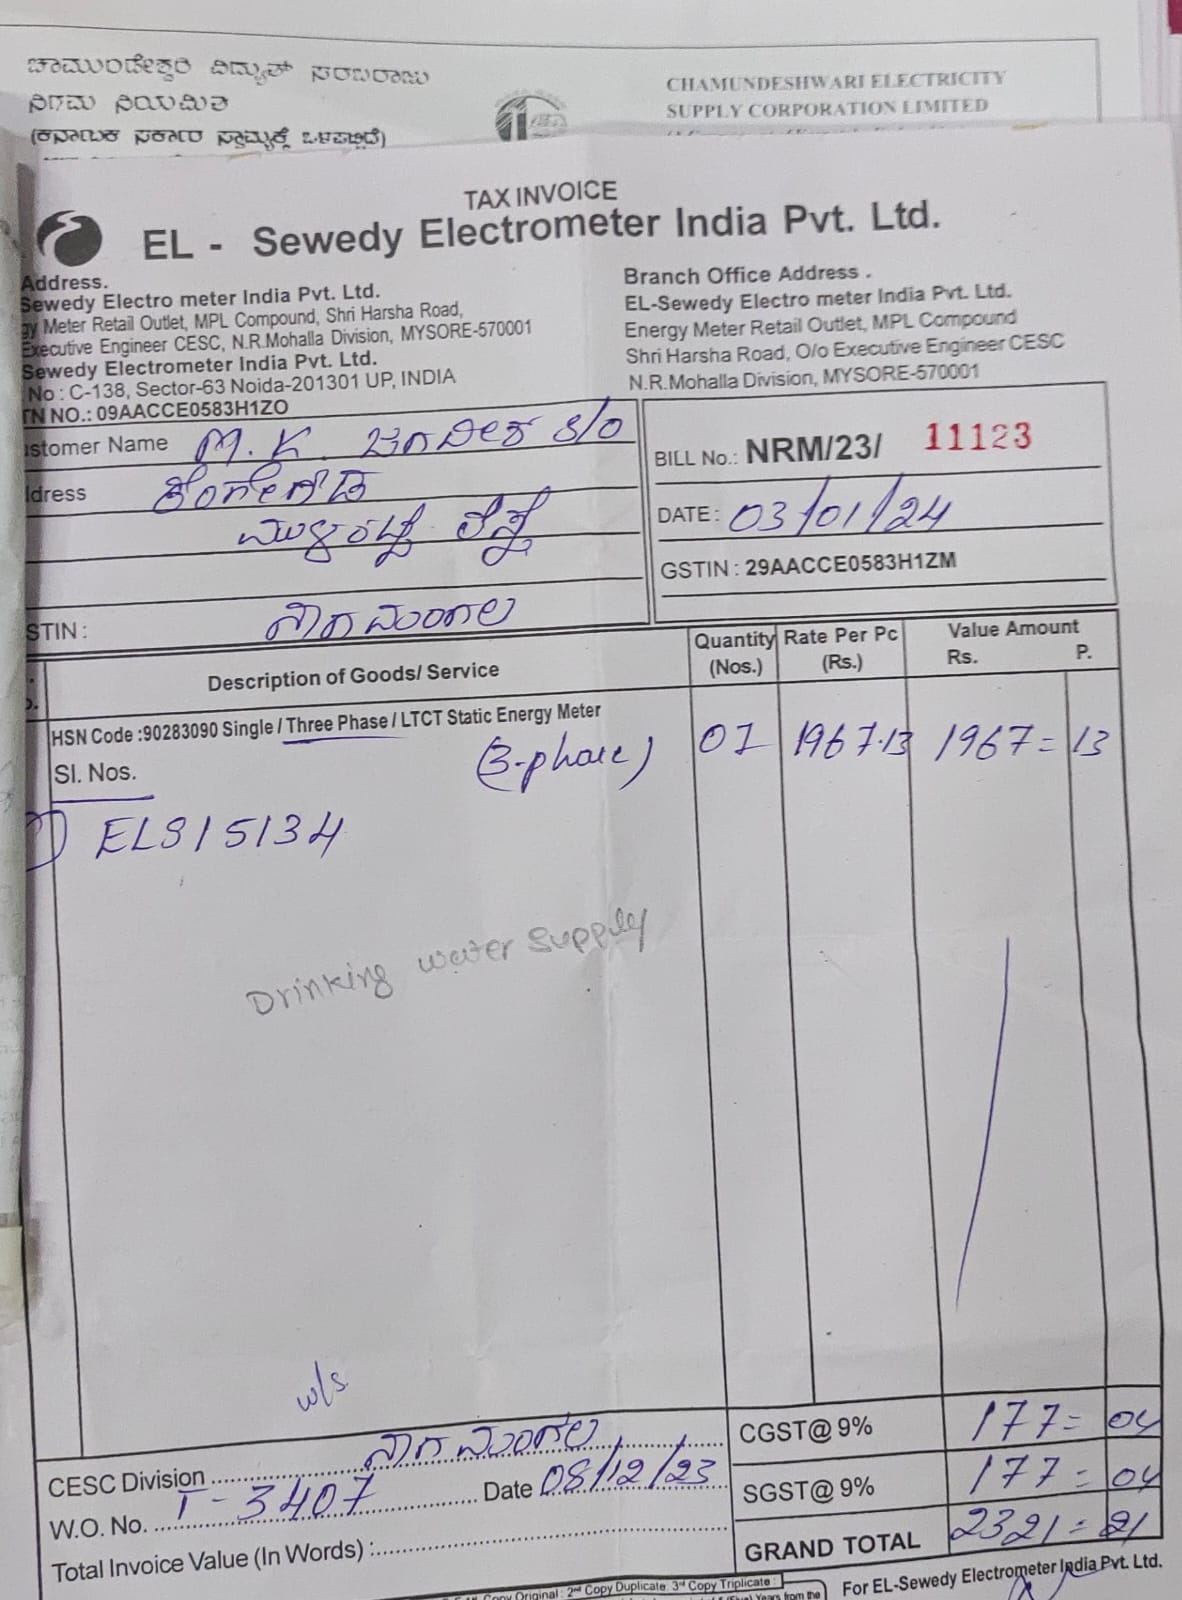 ಚಾಮುಂಡೇಶ್ವರಿ ವಿದ್ಯುತ್ ಸರಬರಾಜು
ನಿಗಮ ನಿಯಮಿತ
(ಕರ್ನಾಟಕ ಸರ್ಕಾರದ ಸ್ವಾಮ್ಯಕ್ಕೆ ಒಳಪಟ್ಟಿದೆ)
CHAMUNDESHWARI ELECTRICITY
SUPPLY CORPORATION LIMITED
TAX INVOICE
EL - Sewedy Electrometer India Pvt. Ltd.
Address.
Sewedy Electro meter India Pvt. Ltd.
gy Meter Retail Outlet, MPL Compound, Shri Harsha Road,
Executive Engineer CESC, N.R.Mohalla Division, MYSORE-570001
Sewedy Electrometer India Pvt. Ltd.
No : C-138, Sector-63 Noida-201301 UP, INDIA
TN NO.: 09AACCE0583H1ZO
Branch Office Address .
EL-Sewedy Electro meter India Pvt. Ltd.
Energy Meter Retail Outlet, MPL Compound
Shri Harsha Road, O/o Executive Engineer CESC
N.R.Mohalla Division, MYSORE-570001
ustomer Name M.K. S/O
ddress
BILL No.: NRM/23/ 11123
DATE: 03/01/24
GSTIN : 29AACCE0583H1ZM
STIN : ನಾಗಮಂಗಲ
Description of Goods/ Service Quantity (Nos.) Rate Per Pc (Rs.) Value Amount Rs. P.
HSN Code :90283090 Single / Three Phase / LTCT Static Energy Meter
(3-phase) 01 1967.13 1967=13
Sl. Nos.
1) ELS15134
Drinking water supply
w/s
CESC Division ನಾಗಮಂಗಲ
W.O. No. T-3407 Date 08/12/23
Total Invoice Value (In Words) :
CGST@ 9% 177=04
SGST@ 9% 177=04
GRAND TOTAL 2321=21
Copy Original : 2nd Copy Duplicate: 3rd Copy Triplicate :
For EL-Sewedy Electrometer India Pvt. Ltd.